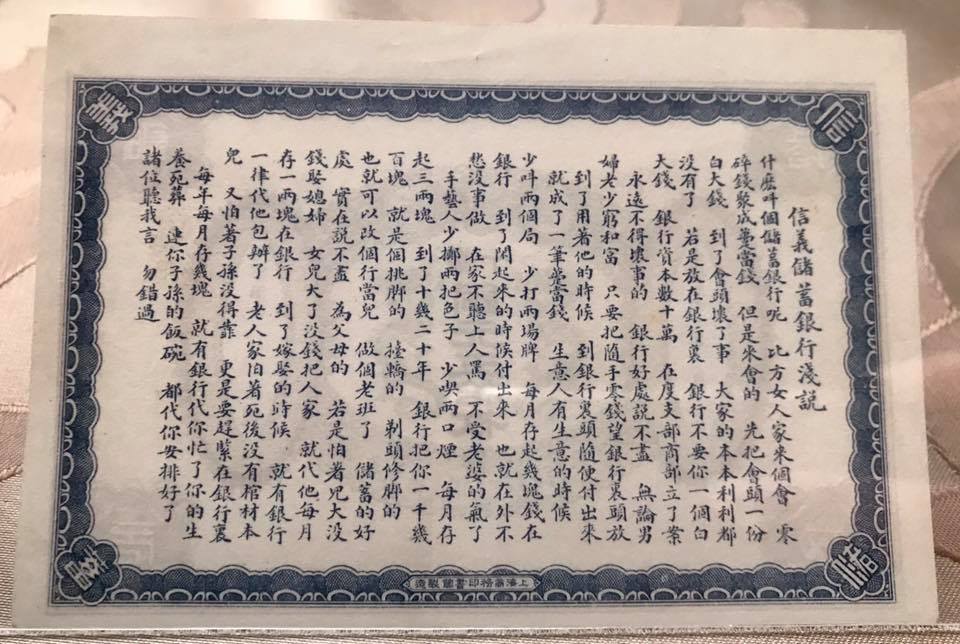 信義儲蓄銀行淺説
什麽呌個儲蓄銀行呢　比方女人家來個會　零
碎錢聚成躉當錢　但是來會的　先把會頭一份
白大錢　到了會頭壞了事　大家的本本利利都
沒有了　若是放在銀行裏　銀行不要你一個白
大錢　銀行資本數十萬　在度支部商部立了案
永遠不得壞事的　銀行好處説不盡　無論男
婦老少窮和富　只要把隨手零錢望銀行裏頭放
到了用著他的時候　到銀行裏頭隨便付出來
就成了一筆躉當錢　生意人有生意的時候
少呌兩個局　少打兩場牌　每月存起幾塊錢在
銀行　到了閑起來的時候付出來　也就在外不
愁沒事做　在家不聽上人罵　不受老婆的氣了
手藝人少擲兩把色子　少喫兩口煙　每月存
起三兩塊　到了十幾二十年　銀行把你一千幾
百塊　就是個挑脚的　擡轎的　剃頭修脚的
也就可以改個行當兒　做個老班了　儲蓄的好
處　實在説不盡　為父母的　若是怕著兒大沒
錢娶媳婦　女兒大了沒錢把人家　就代他每月
存一兩塊在銀行　到了嫁娶的時候　就有銀行
一律代他包辦了　老人家怕著死後沒有棺材本
兒　又怕著子孫沒得靠　更是要趕緊在銀行裏
每年每月存幾塊　就有銀行代你忙了你的生
養死葬　連你子孫的飯碗　都代你安排好了
諸位聽我言　勿錯過
信
義
儲
蓄
上海商務印書館製造